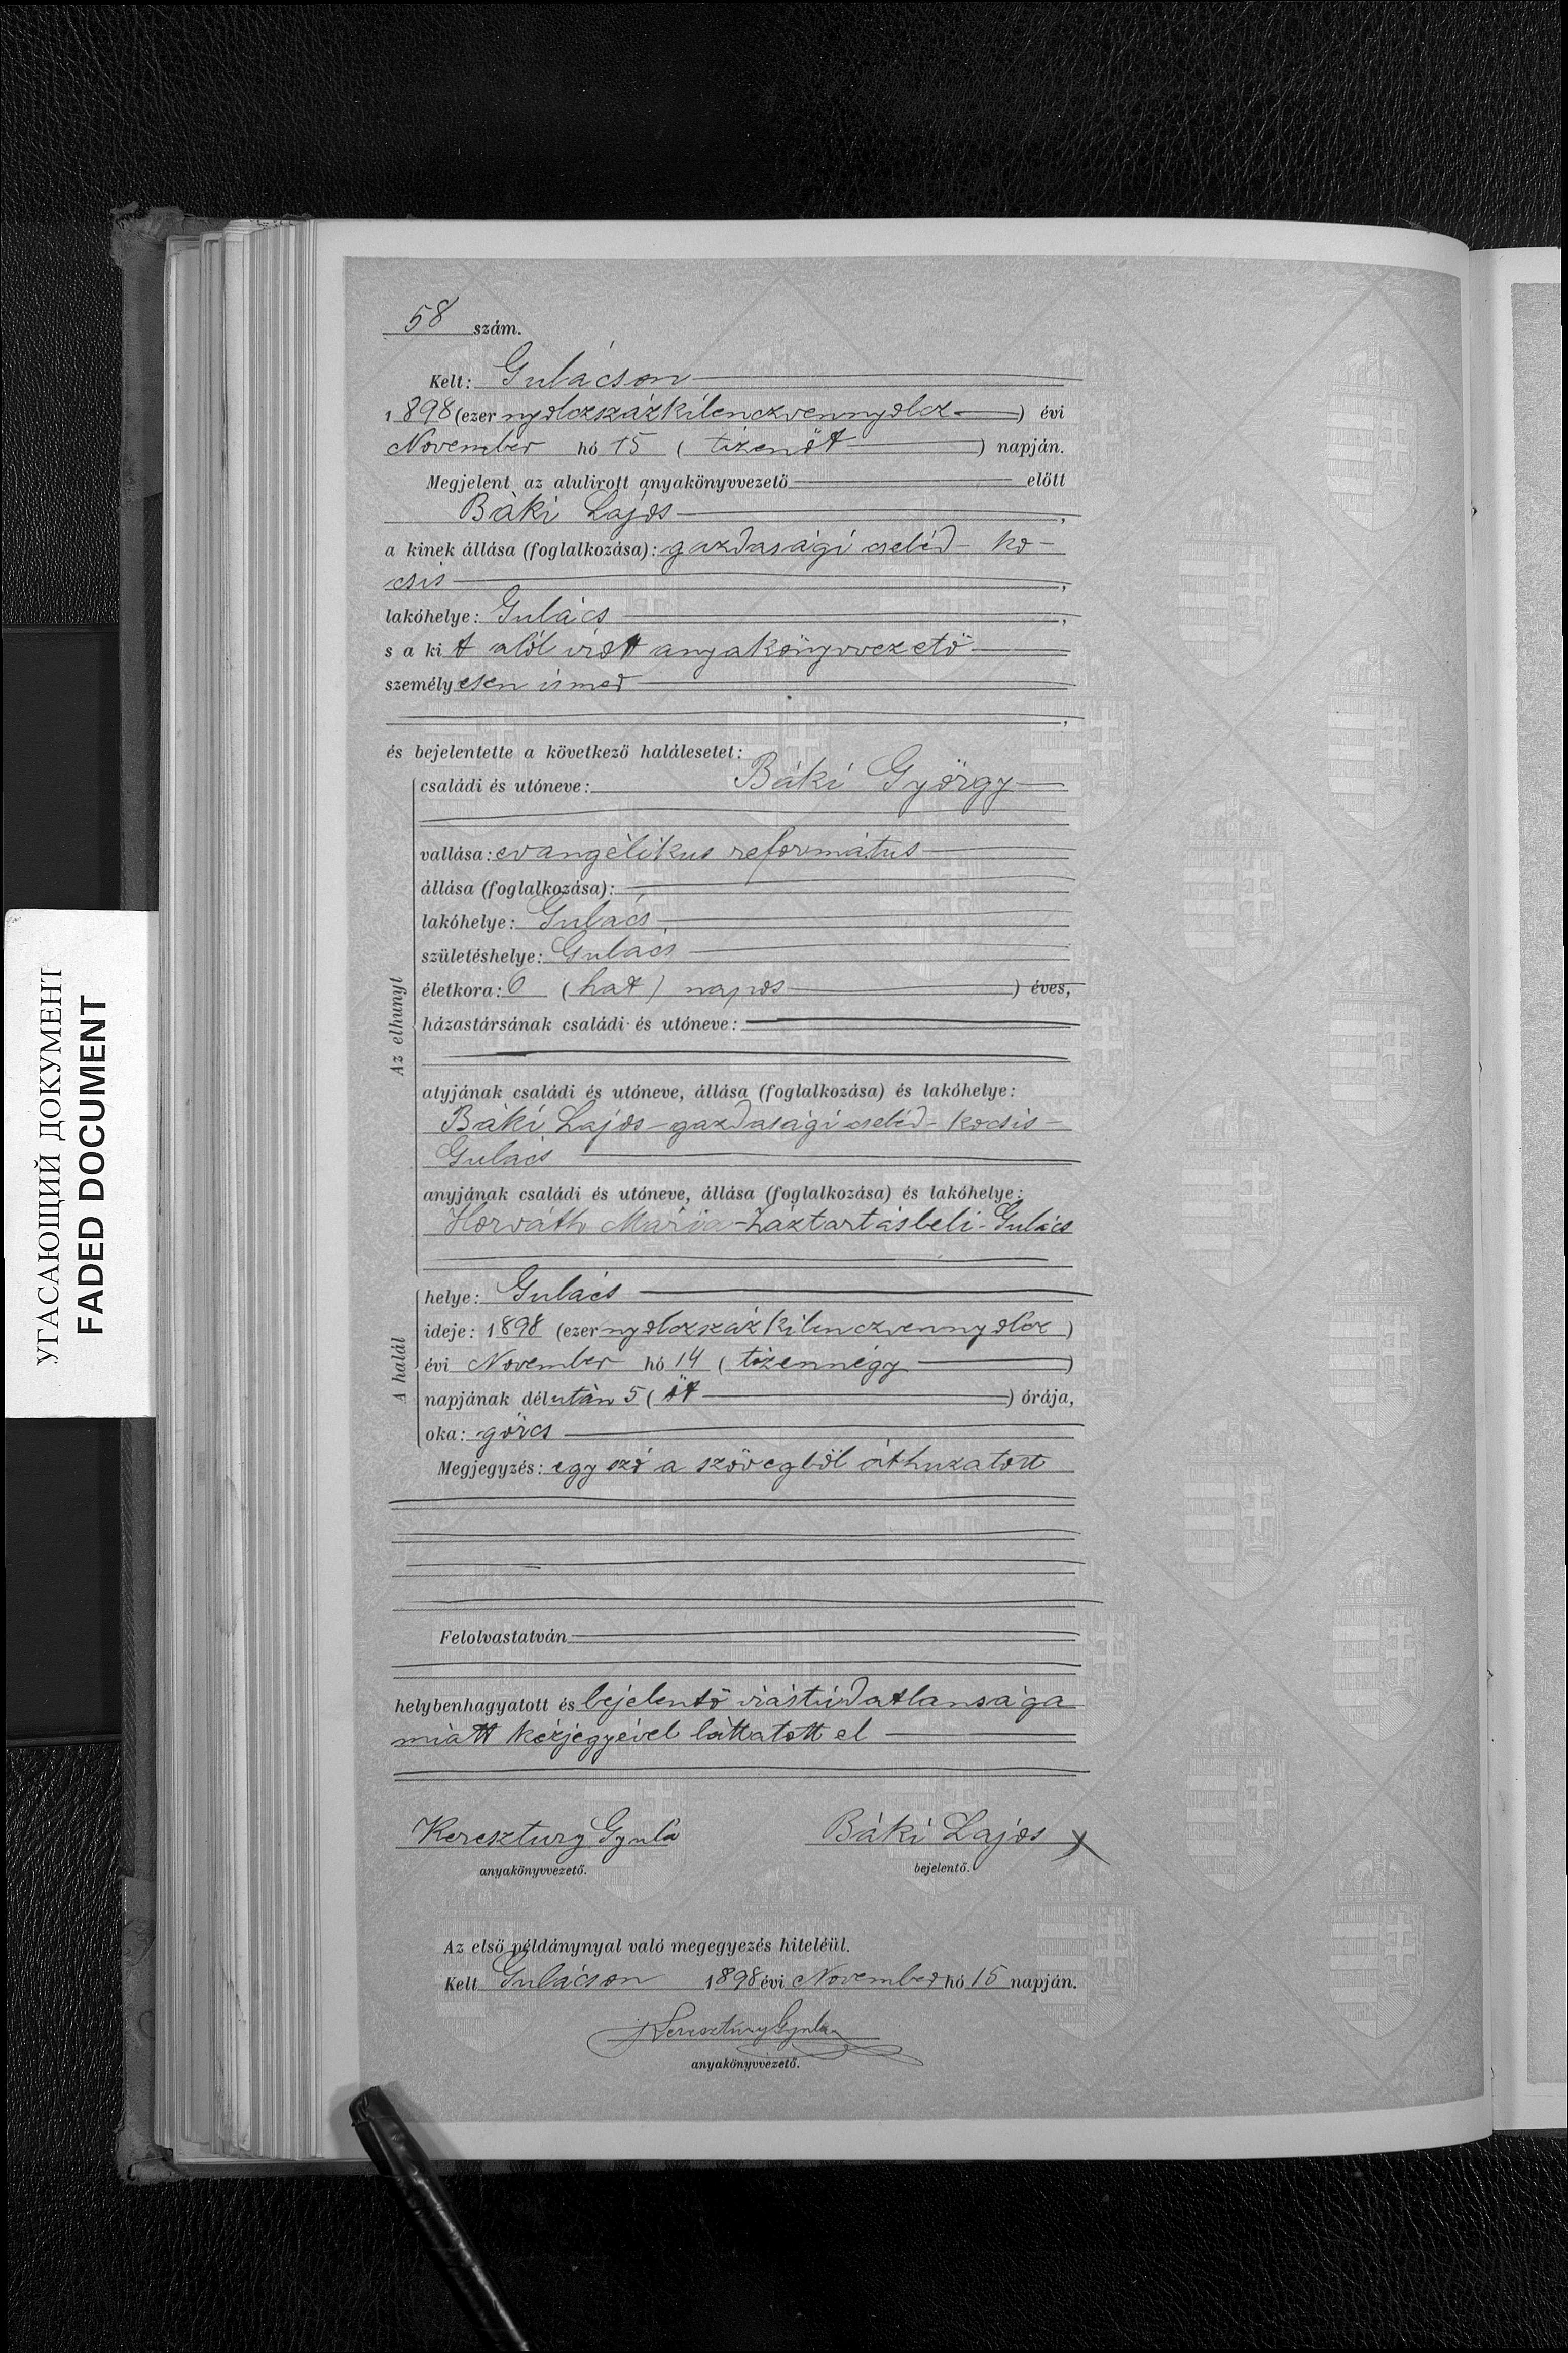 58 szám.
Kelt: Gulácson
1898 (ezer nyolczszázkilenczvennyolcz) évi
November hó 15 (tizenöt) napján.
Megjelent az alulirott anyakönyvvezető előtt
Báki Lajos,
a kinek állása (foglalkozása): gazdasági cseléd - ko-
csis,
lakóhelye: Gulács,
s a kit alól irott anyakönyvvezető
személyesen ismer
,
és bejelentette a következő halálesetet:
Az elhunyt
családi és utóneve: Báki György
vallása: evangélikus református
állása (foglalkozása): —
lakóhelye: Gulács
születéshelye: Gulács
életkora: 6 (hat) napos ) éves,
házastársának családi és utóneve:
atyjának családi és utóneve, állása (foglalkozása) és lakóhelye:
Báki Lajos - gazdasági cseléd - kocsis -
Gulács
anyjának családi és utóneve, állása (foglalkozása) és lakóhelye:
Horváth Mária - háztartásbeli - Gulács
A halál
helye: Gulács
ideje: 1898 (ezer nyolczszázkilenczvennyolcz)
évi November hó 14 (tizennégy)
napjának délután 5 (öt) órája,
oka: görcs
Megjegyzés: egy szó a szövegből áthuzatott
Felolvastatván
helybenhagyatott és bejelentő irástudatlansága
miatt kézjegyével láttatott el
Keresztury Gyula Báki Lajos x
anyakönyvvezető. bejelentő.
Az első példánynyal való megegyezés hiteléül.
Kelt Gulácson 1898 évi November hó 15 napján.
Keresztury Gyula
anyakönyvvezető.
УГАСАЮЩИЙ ДОКУМЕНТ
FADED DOCUMENT